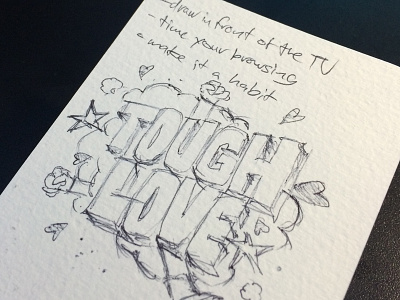 -draw in front of the TV
-time your browsing
a make it a habit
TOUGH
LOVE